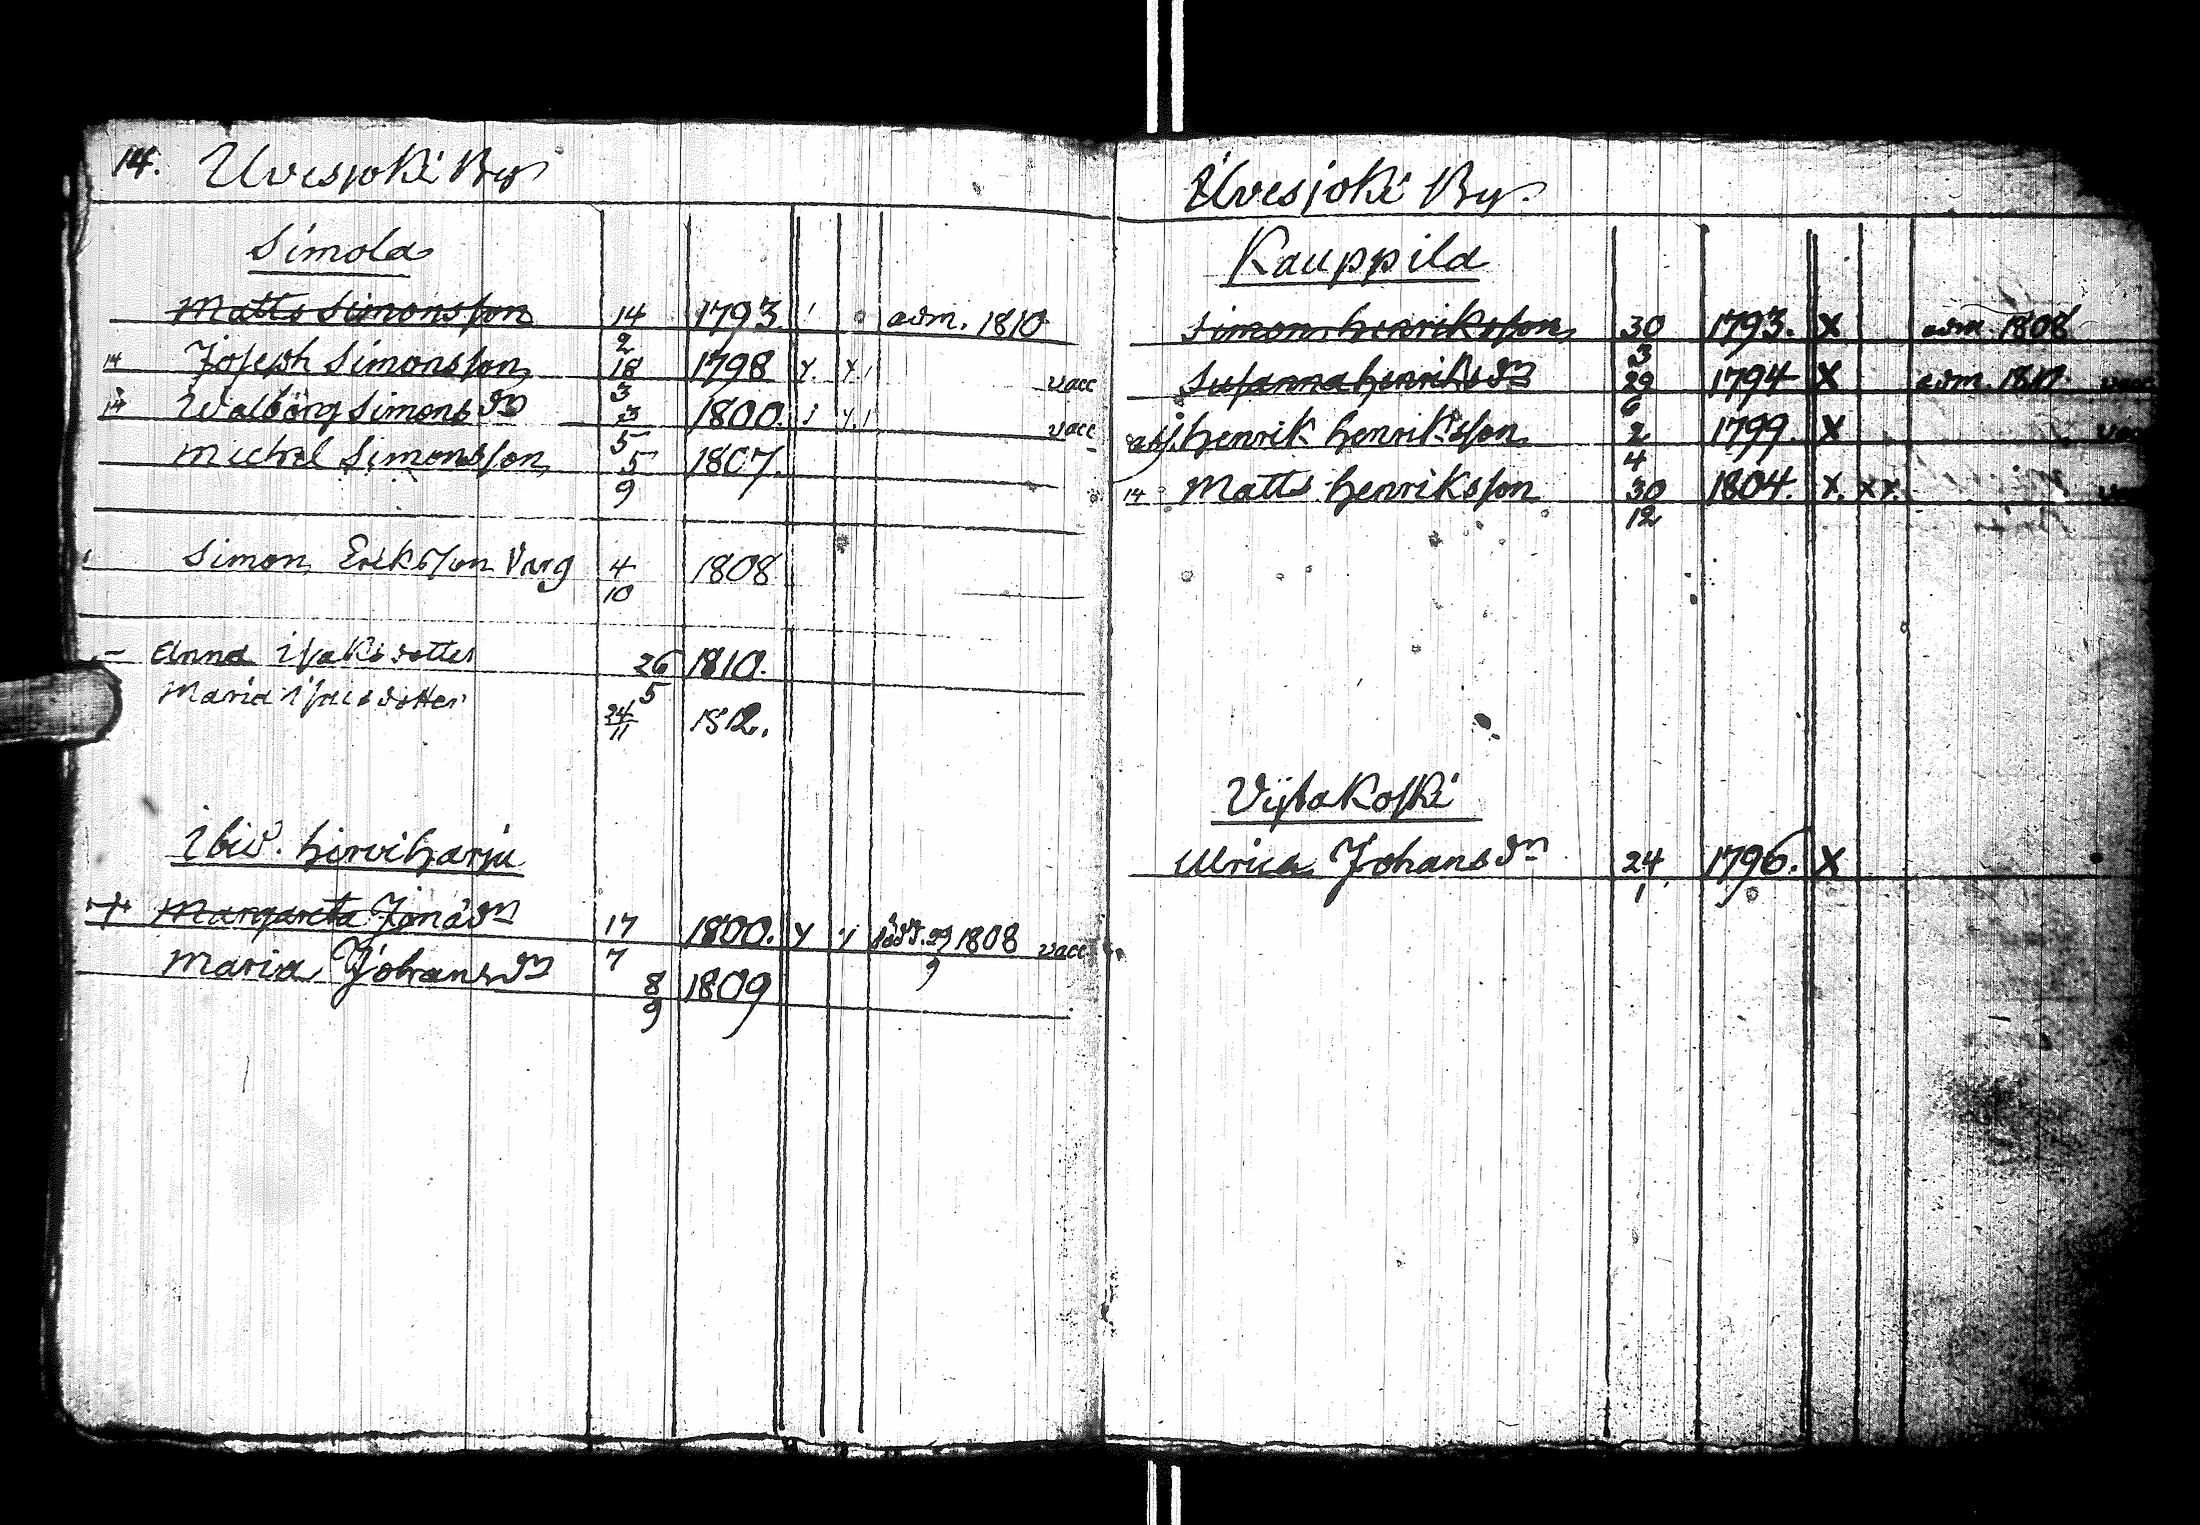 14. Uvesjoki By
Simola
Matts Simonsson 14/2 1793. adm. 1810
14 Joseph Simonsson 18/3 1798 vacc
14 Walborg Simonsdr 3/5 1800. vacc
Michel Simonsson 5/9 1807.
Simon Eriksson Varg 4/10 1808
Anna Isaksdotter 26/5 1810.
Maria Isacsdotter 24/11 1812.
Ibid. Hirviharju
Margareta Jonasdr 17/7 1800. död. 29/9 1808 vacc
Maria Johansdr 8/9 1809
Uvesjoki By.
Kauppila
Simon Henriksson 30/3 1793. X adm. 1808
Susanna Henriksdr 29/6 1794 X adm. vacc
abj. Henrik Henriksson 2/4 1799. X
14 Matts Henriksson 30/12 1804. X. XX.
Vijtakoski
Ulrica Johansdn 24/1 1796. X